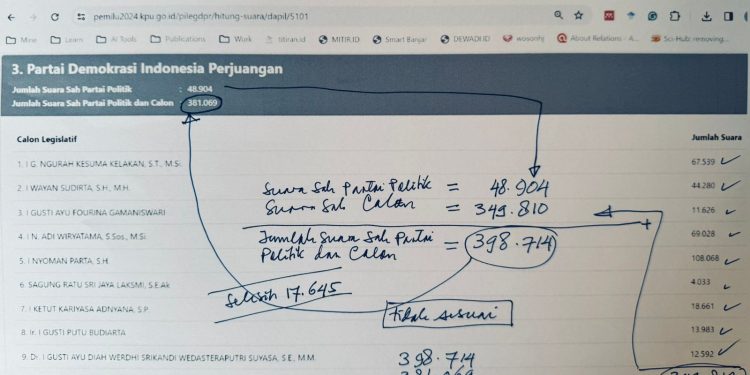 pemilu2024.kpu.go.id/pilegdpr/hitung-suara/dapil/5101
Mine Learn AI Tools Publications Work titiran.id MITIR.ID Smart Banjar DEWADI.ID wosonhj About Relations - A... Sci-Hub: removing...
3. Partai Demokrasi Indonesia Perjuangan
Jumlah Suara Sah Partai Politik : 48.904
Jumlah Suara Sah Partai Politik dan Calon : 381.069
Calon Legislatif Jumlah Suara
1. I G. NGURAH KESUMA KELAKAN, S.T., M.Si. 67.539
2. I WAYAN SUDIRTA, S.H., M.H. 44.280
3. I GUSTI AYU FOURINA GAMANISWARI 11.626
4. I N. ADI WIRYATAMA, S.Sos., M.Si. 69.028
5. I NYOMAN PARTA, S.H. 108.068
6. SAGUNG RATU SRI JAYA LAKSMI, S.E.Ak 4.033
7. I KETUT KARIYASA ADNYANA, S.P. 18.661
8. Ir. I GUSTI PUTU BUDIARTA 13.983
9. Dr. I GUSTI AYU DIAH WERDHI SRIKANDI WEDASTERAPUTRI SUYASA, S.E., M.M. 12.592
Suara Sah Partai Politik = 48.904
Suara Sah Calon = 349.810
+
Jumlah Suara Sah Partai
Politik dan Calon = 398.714
Selisih 17.645
Tidak sesuai
398.714